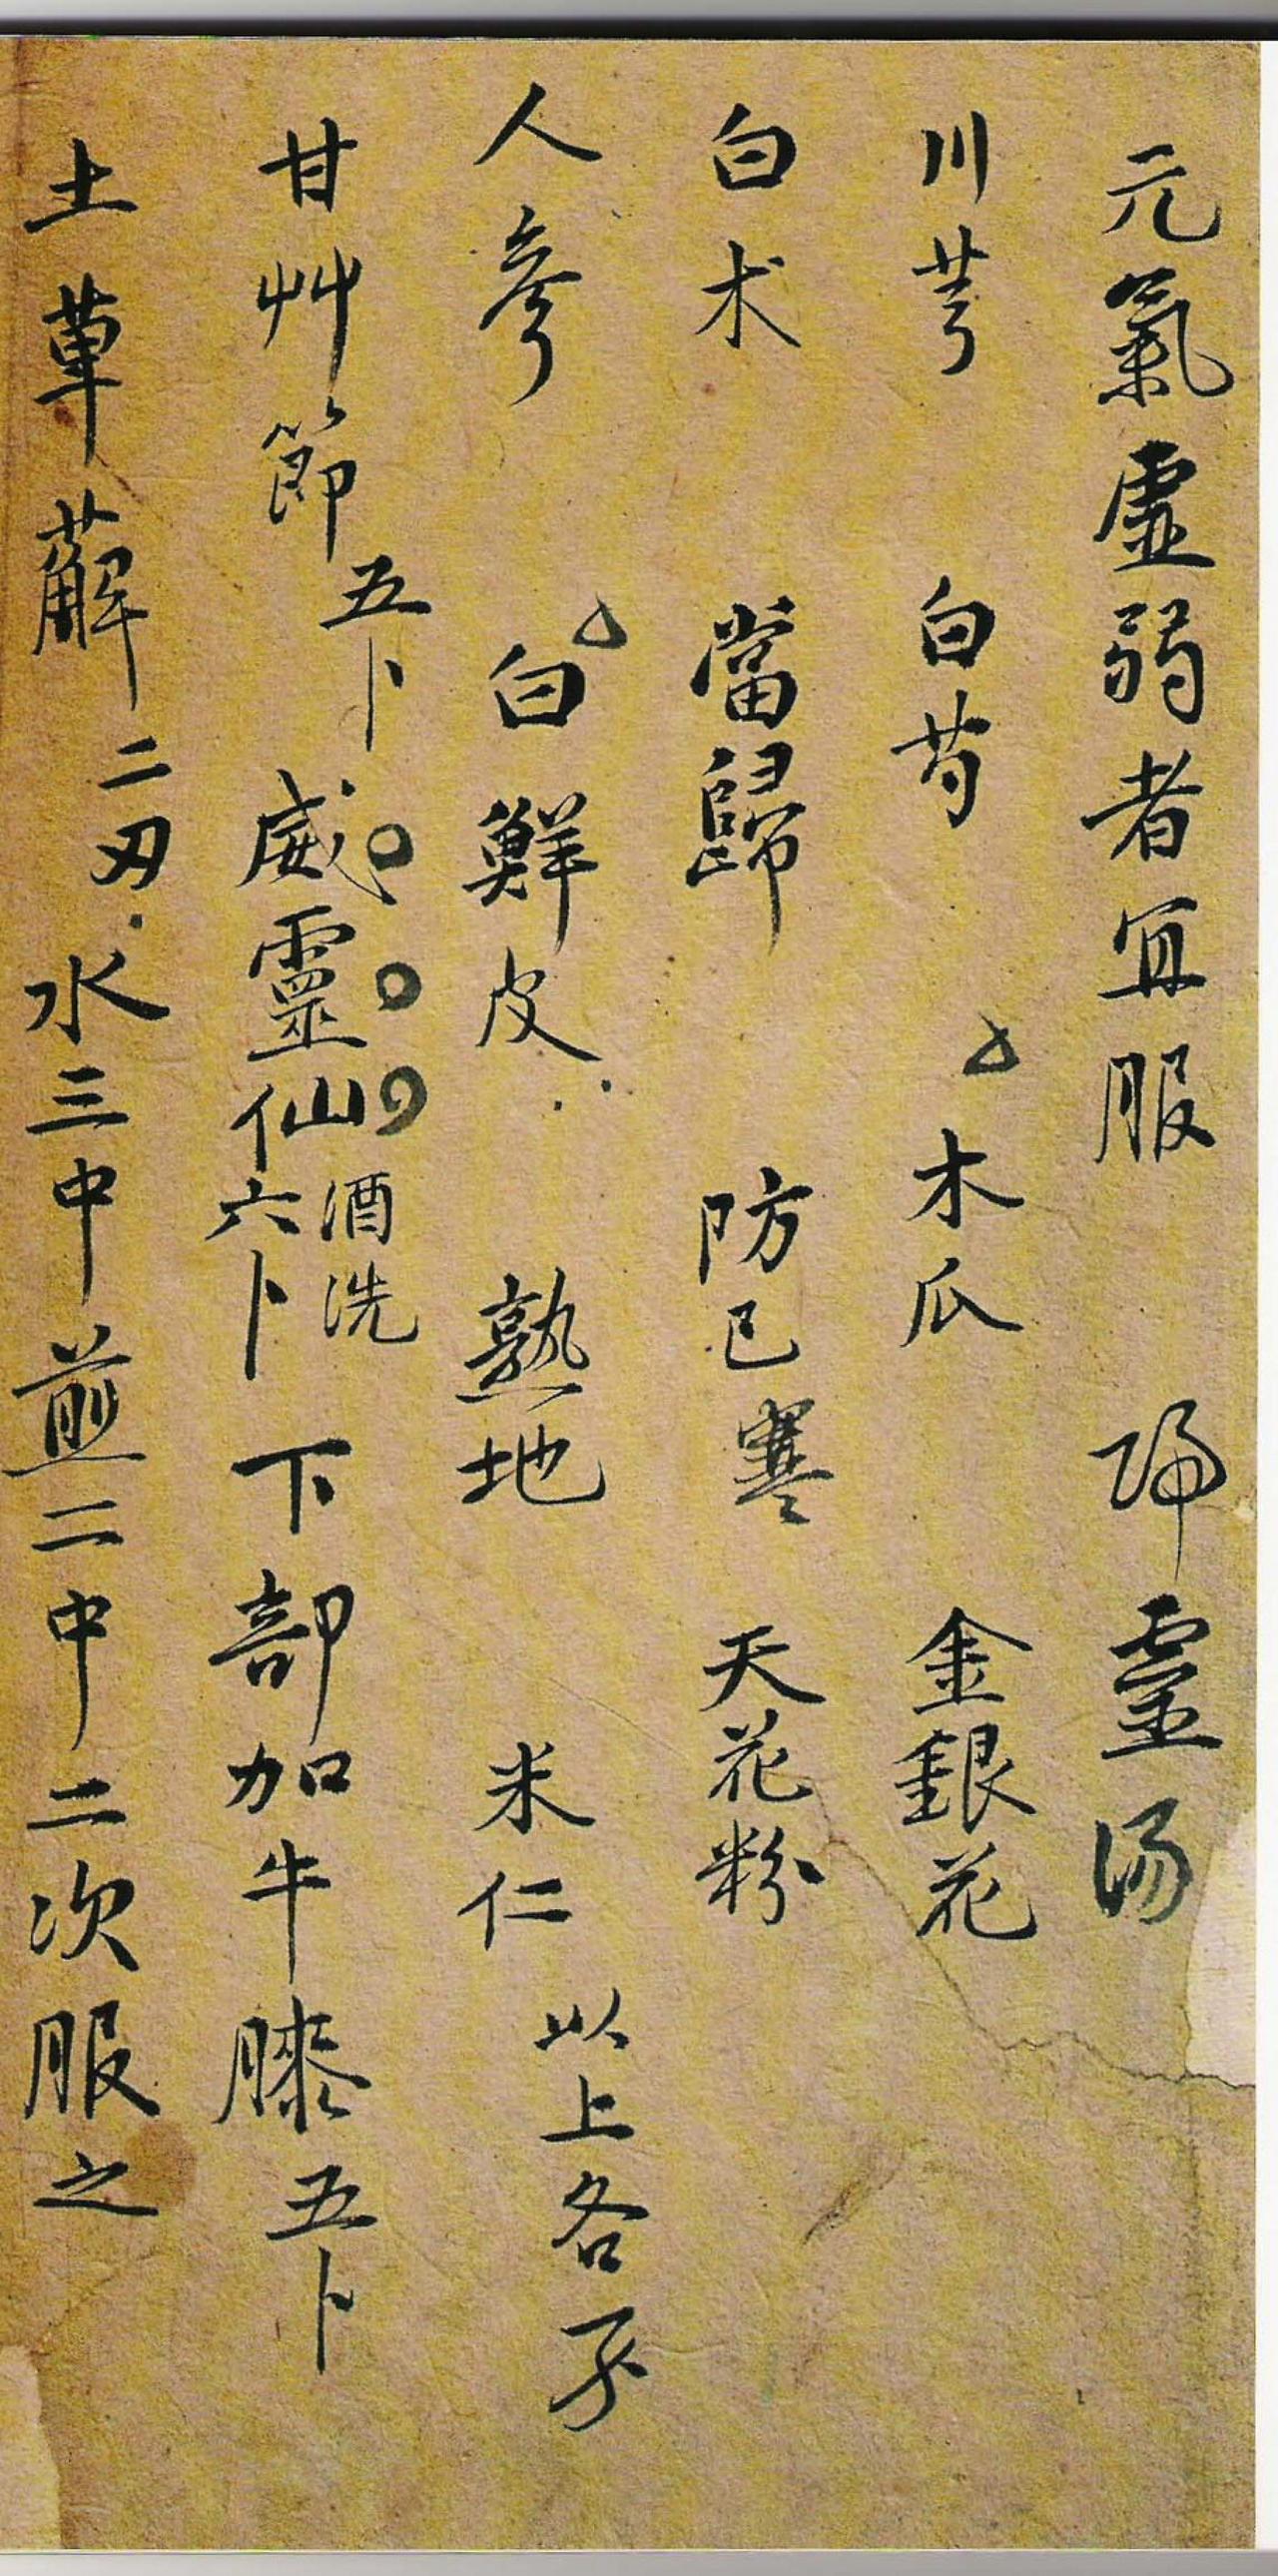 元氣虛弱者宜服 歸靈湯
川芎 白芍 木瓜 金銀花
白朮 當歸 防已寒 天花粉
人參 白鮮皮 熟地 米仁 以上各
甘艸節五卜 威靈仙六卜酒洗 下部加牛膝五卜
土萆薢二刃 水三中煎二中二次服之